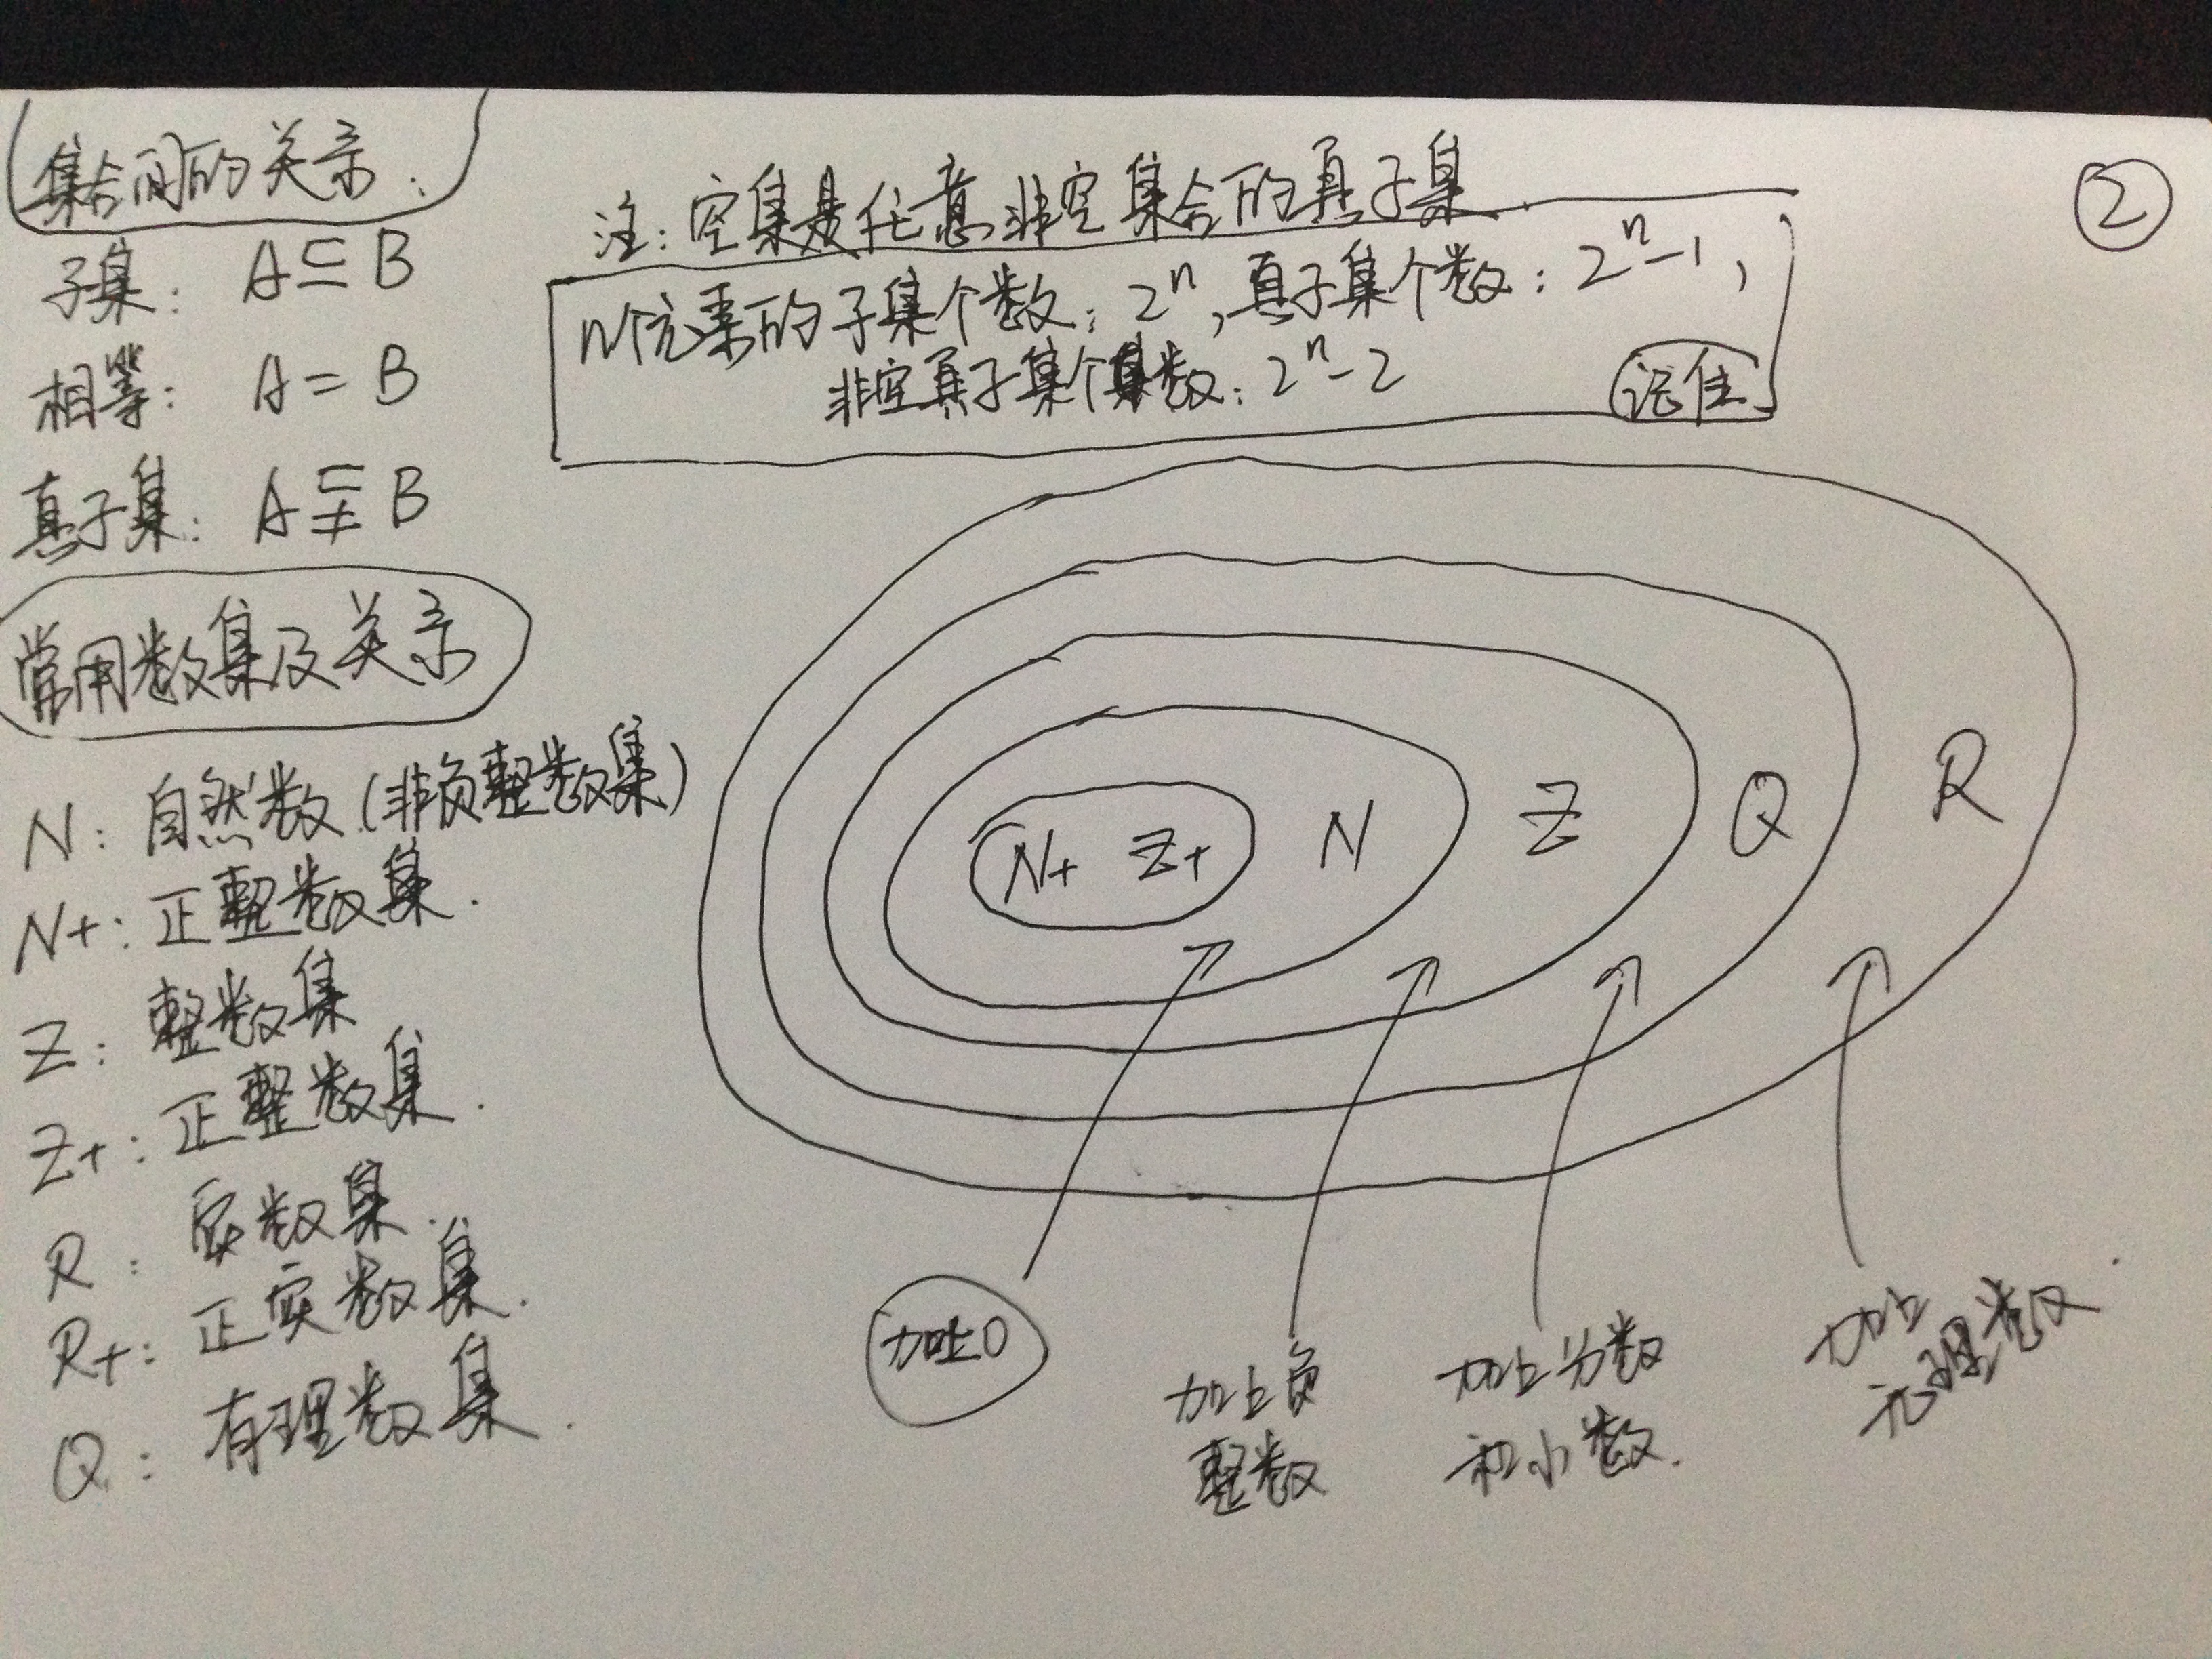 集合间的关系:
子集: A⊆B
相等: A=B
真子集: A⫋B
注:空集是任意非空集合的真子集.
②
n个元素的子集个数:2ⁿ,真子集个数:2ⁿ-1,
非空真子集个数:2ⁿ-2
记住
常用数集及关系
N: 自然数(非负整数集)
N+: 正整数集.
Z: 整数集
Z+: 正整数集.
R: 实数集.
R+: 正实数集.
Q: 有理数集.
N+ Z+ N Z Q R
加上0
加上负
整数
加上分数
和小数.
加上
无理数